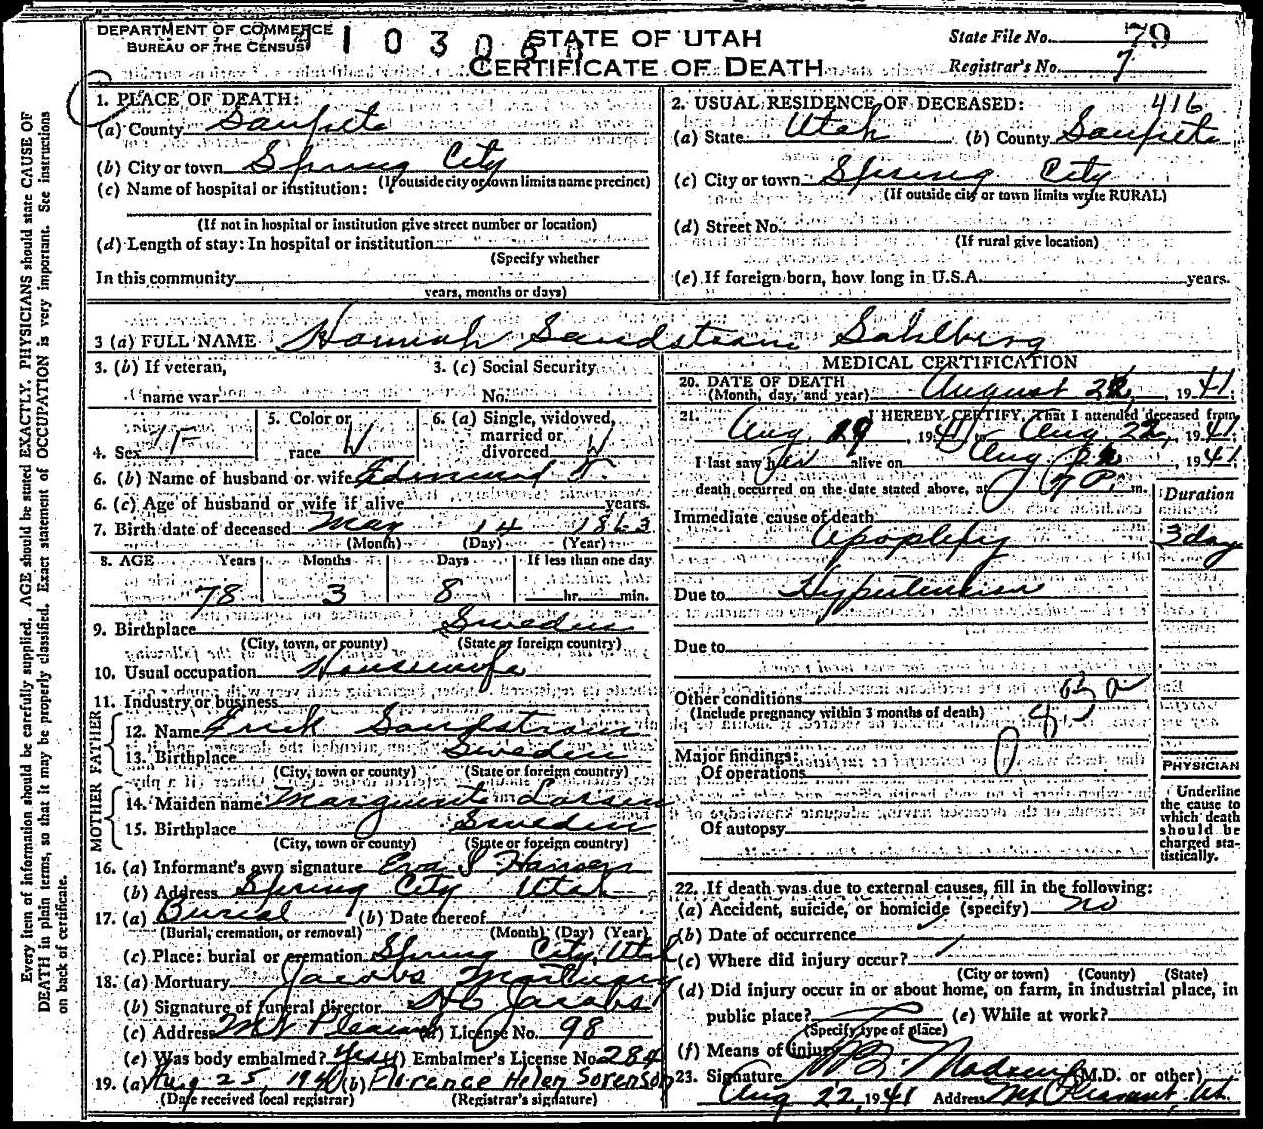 DEPARTMENT OF COMMERCE
BUREAU OF THE CENSUS
STATE OF UTAH
CERTIFICATE OF DEATH
State File No. 79
Registrar's No. 7
1. PLACE OF DEATH:
(a) County Sanpete
(b) City or town Spring City
(If outside city or town limits name precinct)
(c) Name of hospital or institution:
(If not in hospital or institution give street number or location)
(d) Length of stay: In hospital or institution
(Specify whether
In this community
years, months or days)
2. USUAL RESIDENCE OF DECEASED: 416
(a) State Utah (b) County Sanpete
(c) City or town Spring City
(If outside city or town limits write RURAL)
(d) Street No.
(If rural give location)
(e) If foreign born, how long in U.S.A. years.
3 (a) FULL NAME Hannah Sandstrom Sahlberg
3. (b) If veteran,
name war
3. (c) Social Security
No.
4. Sex F
5. Color or
race W
6. (a) Single, widowed,
married or
divorced W
6. (b) Name of husband or wife Edmund F.
6. (c) Age of husband or wife if alive years.
7. Birth date of deceased May 14 1863
(Month) (Day) (Year)
8. AGE Years Months Days If less than one day
78 3 8 hr. min.
9. Birthplace Sweden
(City, town, or county) (State or foreign country)
10. Usual occupation Housewife
11. Industry or business
FATHER
12. Name Erick Sandstrom
13. Birthplace Sweden
(City, town or county) (State or foreign country)
MOTHER
14. Maiden name Marguerite Larsen
15. Birthplace Sweden
(City, town or county) (State or foreign country)
16. (a) Informant's own signature Eva S
(b) Address Spring City Utah
17. (a) Burial (b) Date thereof
(Burial, cremation, or removal) (Month) (Day) (Year)
(c) Place: burial or cremation Spring City, Utah
18. (a) Mortuary Jacobs Mortuary
(b) Signature of funeral director HC Jacobs
(c) Address Mt Pleasant (d) License No. 98
(e) Was body embalmed? Yes (f) Embalmer's License No. 284
19. (a) Aug 25, 1941 (b) Florence Helen Sorenson
(Date received local registrar) (Registrar's signature)
MEDICAL CERTIFICATION
20. DATE OF DEATH
(Month, day, and year) August 22, 1941
21. I HEREBY CERTIFY, That I attended deceased from
Aug. 19, 1941 to Aug 22, 1941;
I last saw her alive on Aug 22, 1941;
death occurred on the date stated above, at 7 P. m.
Duration
Immediate cause of death
Apoplexy 3 day
Due to Hypertension
Due to
Other conditions
(Include pregnancy within 3 months of death)
Major findings:
Of operations
Of autopsy
PHYSICIAN
Underline
the cause to
which death
should be
charged sta-
tistically.
22. If death was due to external causes, fill in the following:
(a) Accident, suicide, or homicide (specify) no
(b) Date of occurrence
(c) Where did injury occur?
(City or town) (County) (State)
(d) Did injury occur in or about home, on farm, in industrial place, in
public place? (e) While at work?
(Specify type of place)
(f) Means of injury
23. Signature Madsen (M.D. or other)
Aug 22, 1941 Address Mt Pleasant, Ut.
Every item of information should be carefully supplied. AGE should be stated EXACTLY. PHYSICIANS should state CAUSE OF
DEATH in plain terms, so that it may be properly classified. Exact statement of OCCUPATION is very important. See instructions
on back of certificate.